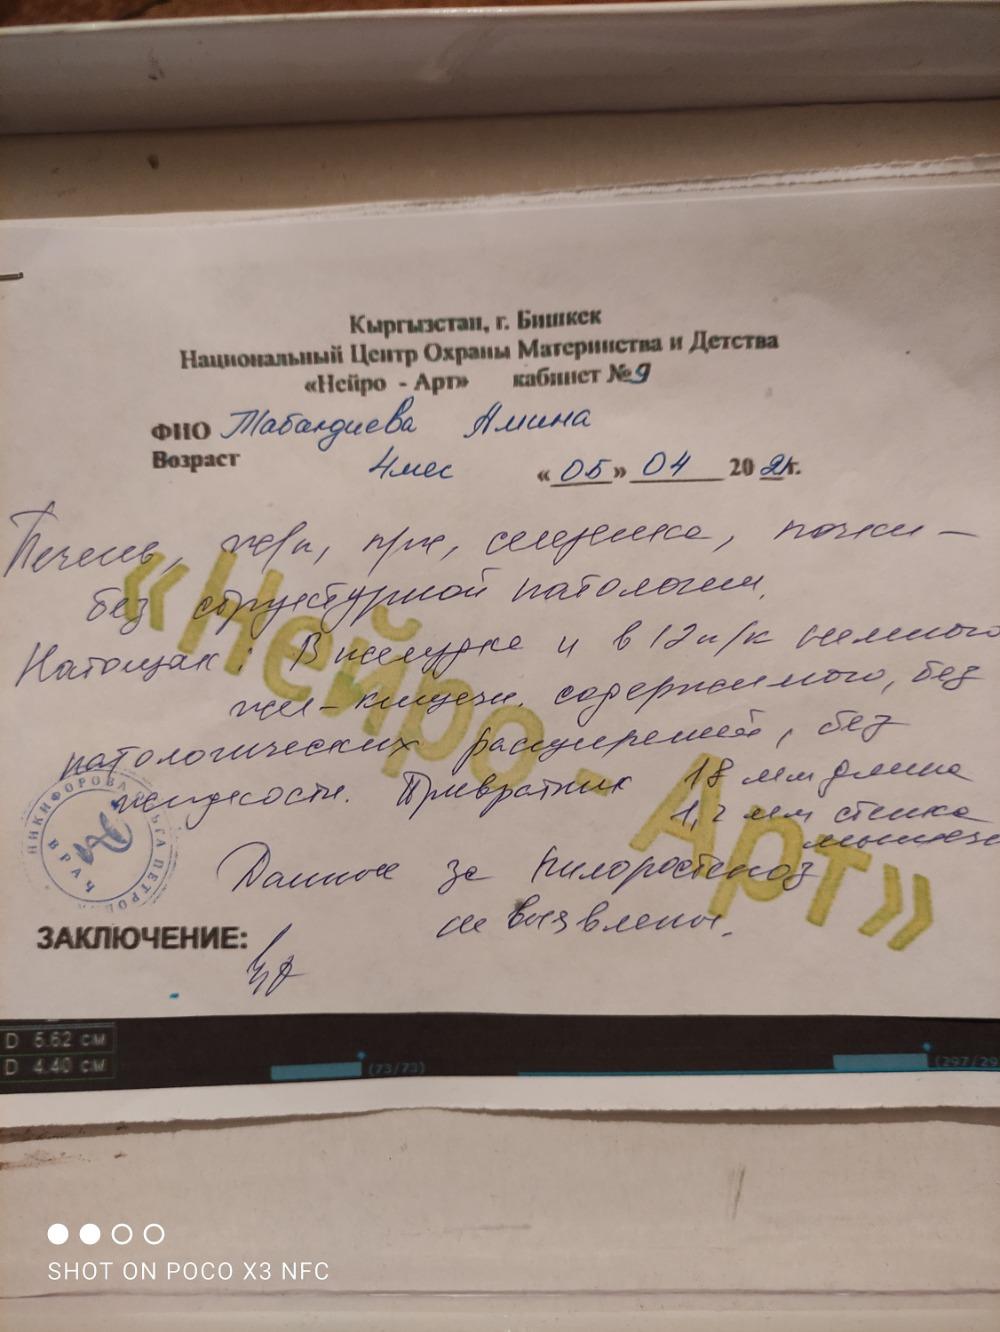 Кыргызстан, г. Бишкек
Национальный Центр Охраны Материнства и Детства
«Нейро - Арт» кабинет №9
ФИО Табалдиева Амина
Возраст 4 мес «05» 04 2021г.
Печень, ж/п, п/ж, селезенка, почки –
без структурной патологии.
Натощак: В желудке и в 12 п/к немного
жел-кишечн. содержимого, без
патологических расширений, без
жидкости. Привратник 18 мм длина
1,2 мм стенка
мышечн
Данные за пилоростеноз
не выявлены.
ЗАКЛЮЧЕНИЕ:
НИКИФОРОВА ОЛЬГА ПЕТРОВНА
ВРАЧ
«Нейро - Арт»
D 5.62 см
D 4.40 см
(73/73)
(297/29
SHOT ON POCO X3 NFC